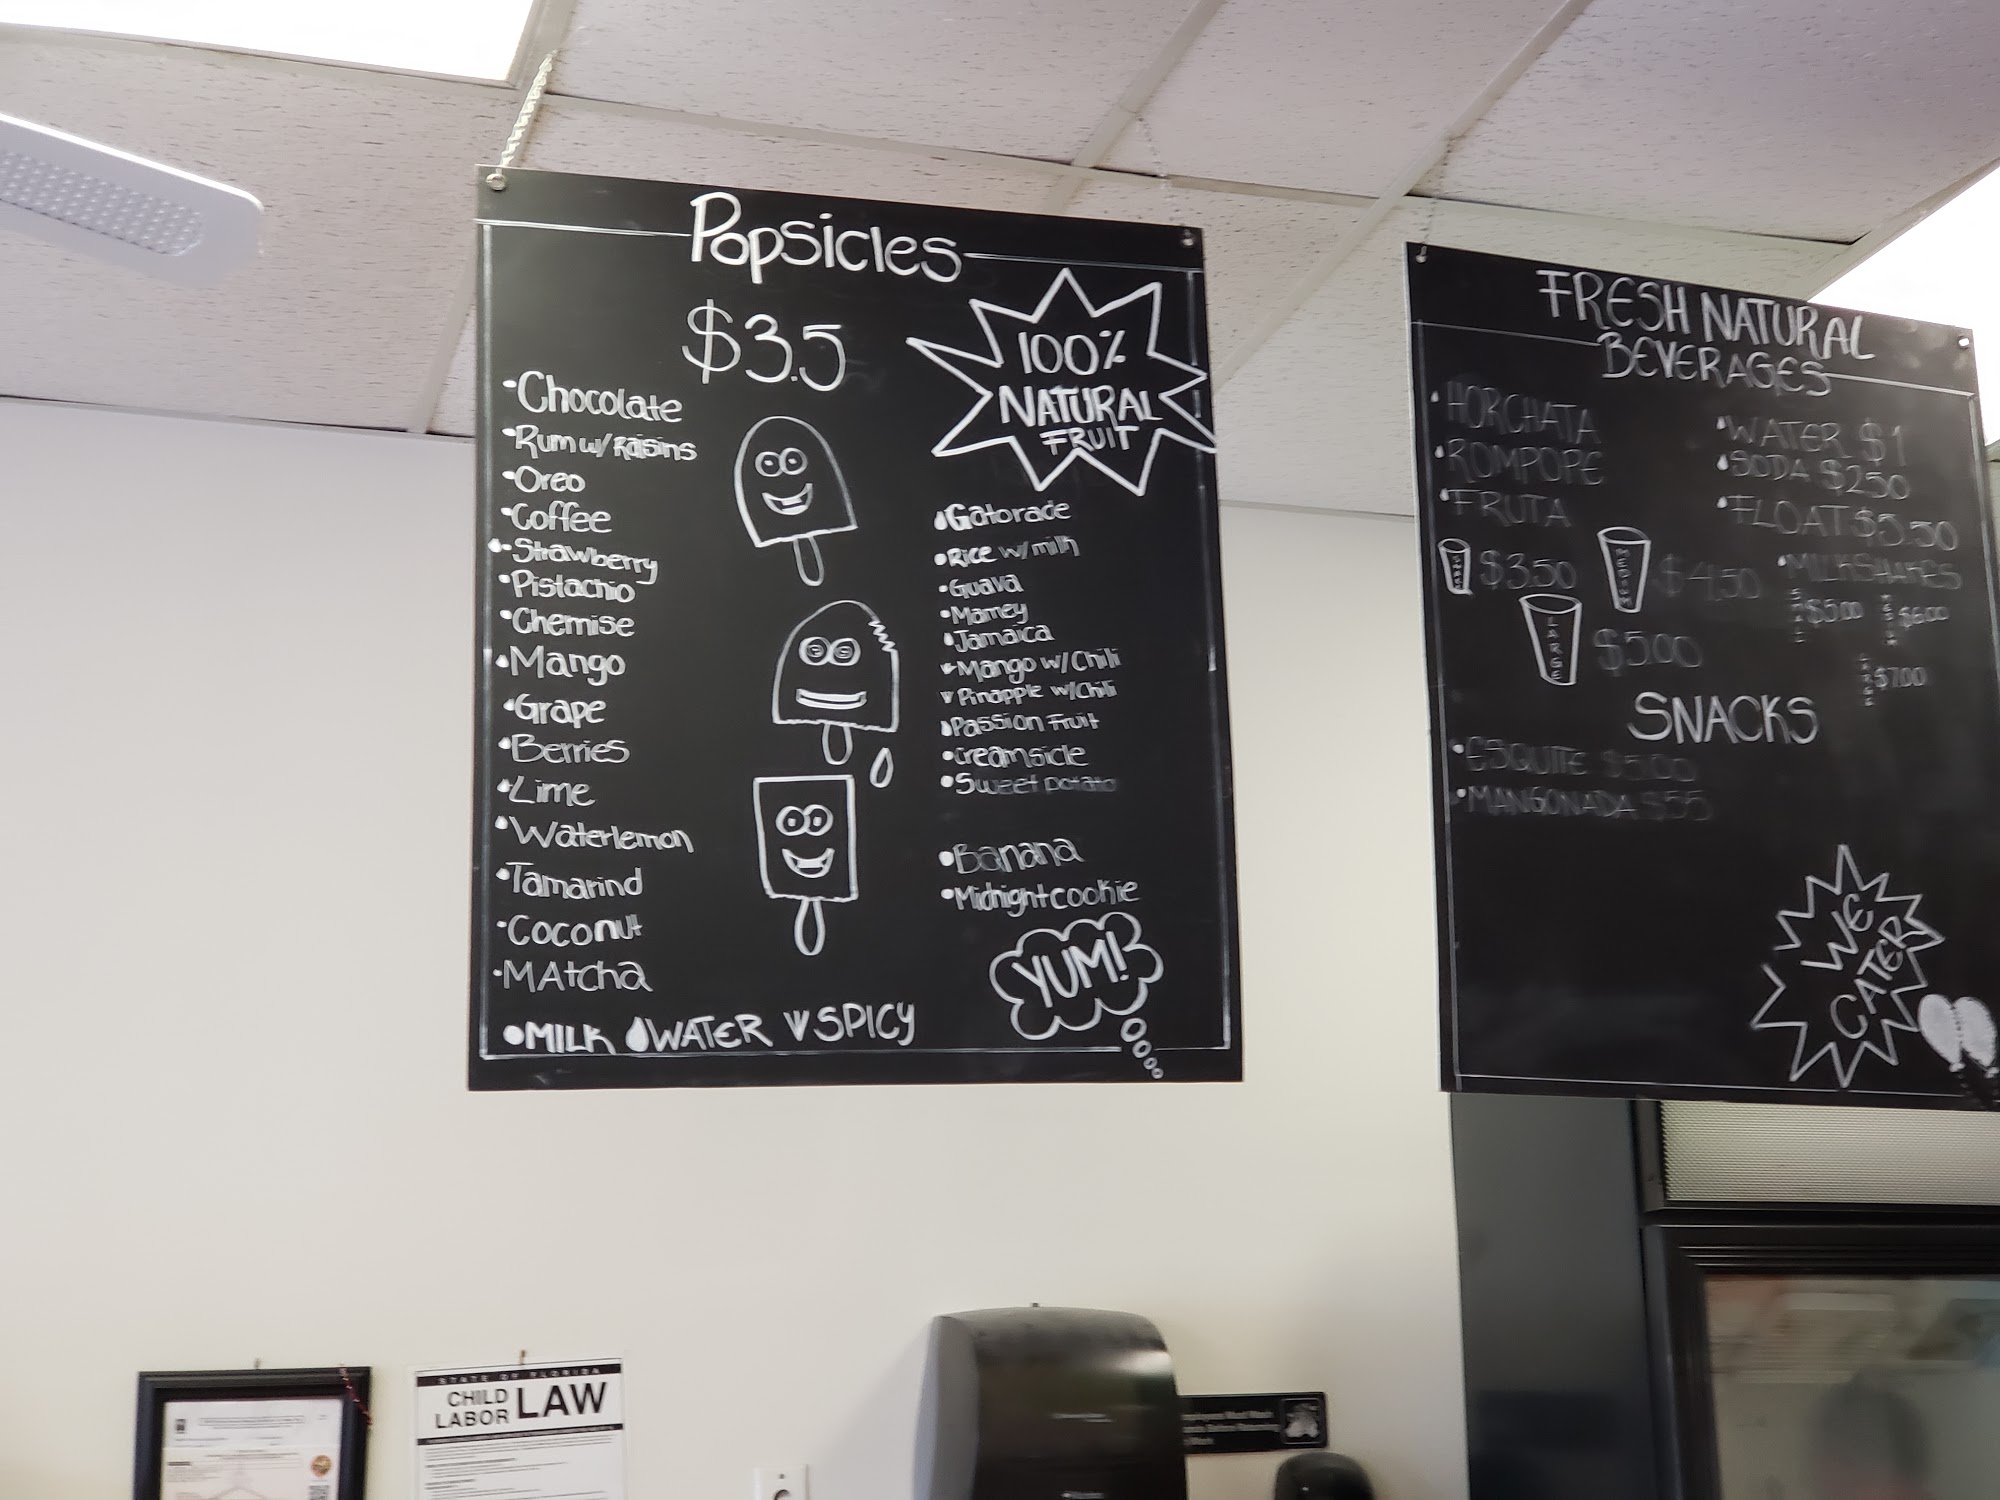 Popsicles
$3.5
100%
NATURAL
FRUIT
•Chocolate
•Rum w/ Raisins
•Oreo
•Coffee
•Strawberry
•Pistachio
•Chemise
•Mango
•Grape
•Berries
•Lime
•Waterlemon
•Tamarind
•Coconut
•MAtcha
Gatorade
•Rice w/ milk
•Guava
•Mamey
Jamaica
Mango w/ Chili
Pinapple w/ Chili
Passion Fruit
•Creamsicle
•Sweet potato
•Banana
•Midnight cookie
YUM!
•MILK WATER SPICY
FRESH NATURAL
BEVERAGES
HORCHATA
ROMPOPE
FRUTA
SMALL $3.50
MEDIUM $4.50
LARGE $5.00
WATER $1
SODA $250
FLOAT $5.50
•MILKSHAKES
SMALL $5.00
MEDIUM $6.00
LARGE $7.00
SNACKS
•ESQUITE $5.00
•MANGONADA $55
WE
CATER
STATE OF FLORIDA
CHILD
LABOR
LAW